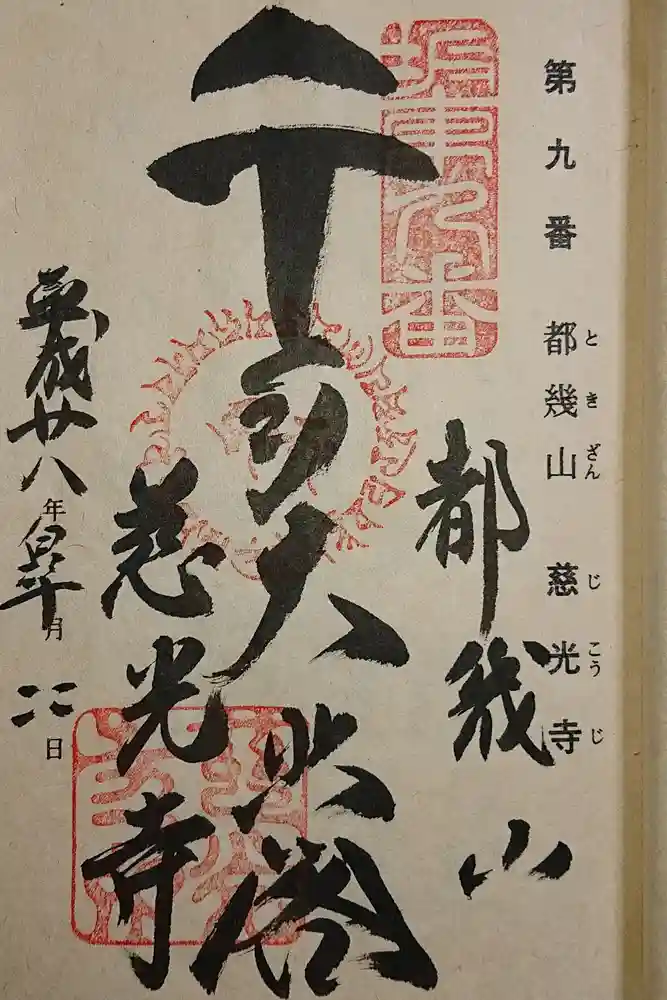 第九番 都幾山 慈光寺
とき ざん じ こう じ
坂東九番
都幾山
千手大悲閣
慈光寺
平成廿八年皐月二二日